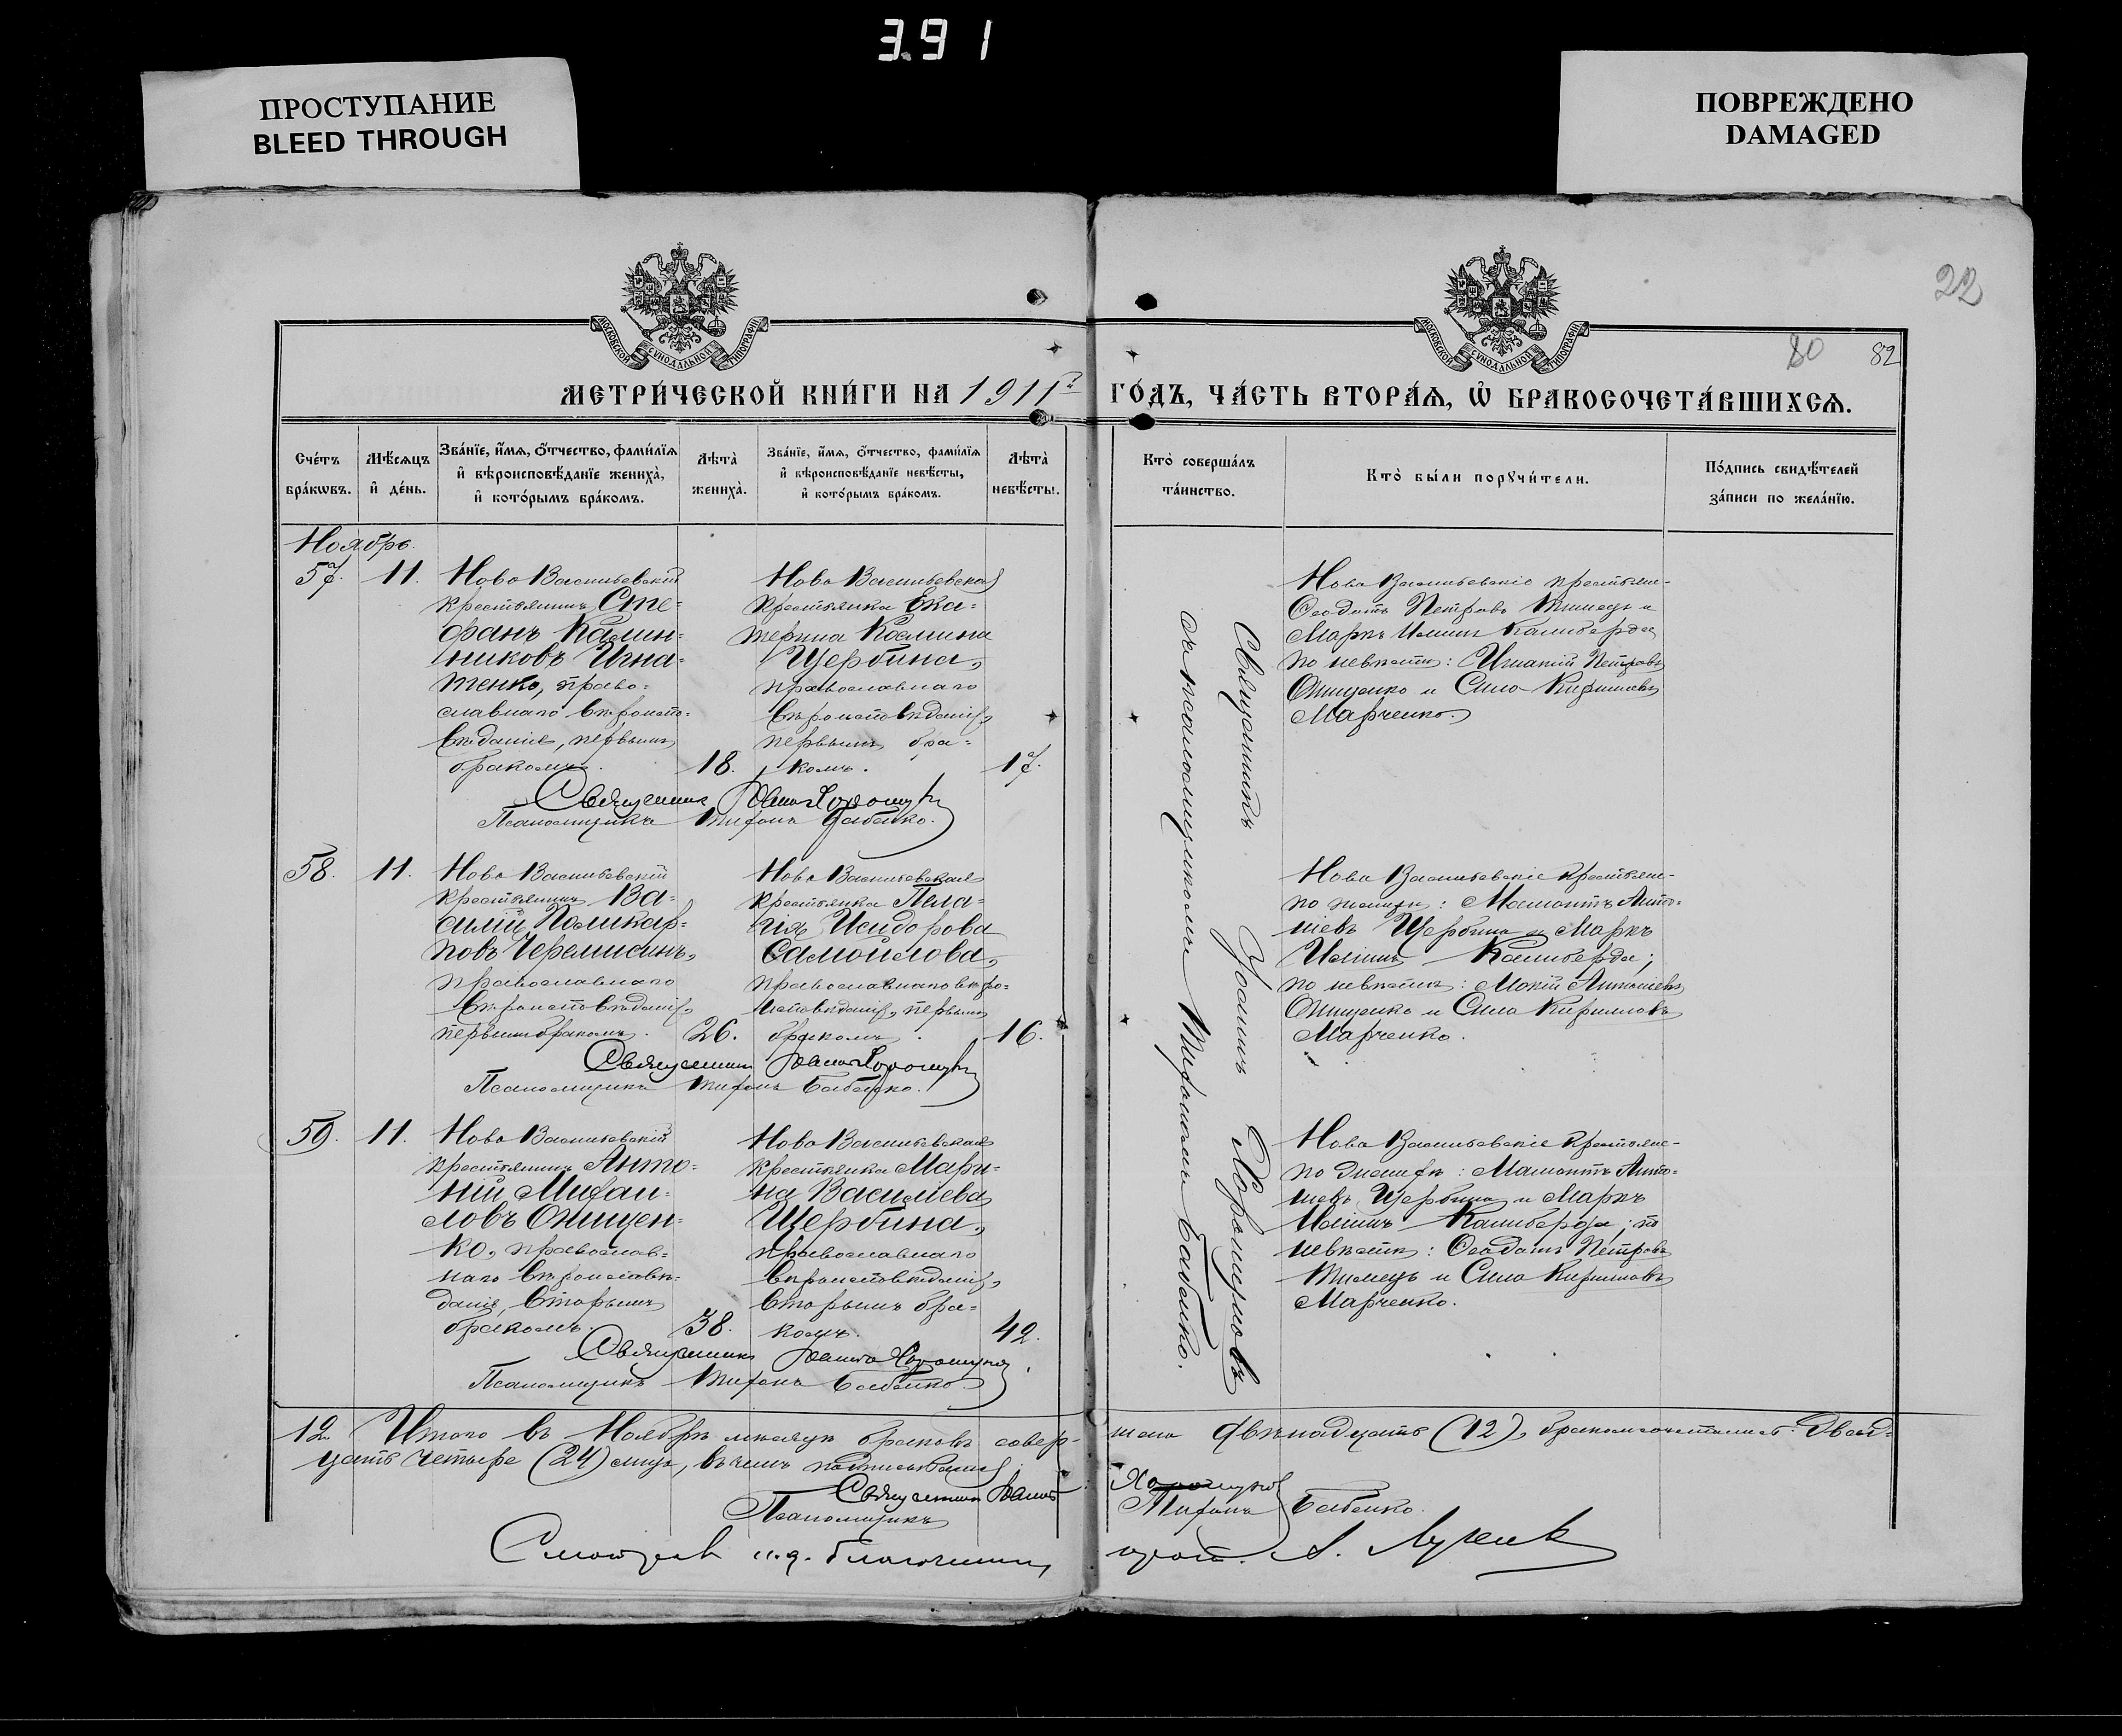 391
ПРОСТУПАНИЕ
BLEED THROUGH
ПОВРЕЖДЕНО
DAMAGED
22
80 82
МОСКОВСКОЙ СѴНОДАЛЬНОЙ ТИПОГРАФІИ
МОСКОВСКОЙ СѴНОДАЛЬНОЙ ТИПОГРАФІИ
МЕТРИ́ЧЕСКОЙ КНИ́ГИ НА 1911 ГО́ДЪ, ЧА́СТЬ ВТОРА́Ѧ, Ѡ҆ БРАКОСОЧЕТА́ВШИХСѦ.
Сче́тъ
бра́кѡвъ.
Мѣ́сѧцъ
и҆ де́нь.
Зва́нїе, и҆́мѧ, ѻ҆́тчество, фами́лїѧ
и҆ вѣроисповѣ́данїе жениха̀,
и҆ кото́рымъ бра́комъ.
Лѣта̀
жениха̀.
Зва́нїе, и҆́мѧ, ѻ҆́тчество, фами́лїѧ
и҆ вѣроисповѣ́данїе невѣ́сты,
и҆ кото́рымъ бра́комъ.
Лѣта̀
невѣ́сты.
Кто̀ соверша́лъ
та́инство.
Кто̀ бы́ли порꙋчи́тели.
По́дпись свидѣ́телей
за́писи по жела́нїю.
Ноябрь.
57. 11.
Ново Васильевскій
крестьянинъ Сте=
фанъ Калин=
никовъ Игна=
тенко, право=
славнаго вѣроиспо=
вѣданія, первымъ
бракомъ. 18.
Ново Васильевская
крестьянка Ека=
терина Косьмина
Щербина,
православнаго
вѣроисповѣданія,
первымъ бра=
комъ. 17.
Священникъ Іоаннъ Хорошунъ
Псаломщикъ Тифонъ Бабенко.
Ново Васильевскіе крестьяне-
Ѳеодотъ Петровъ Тимецъ и
Маркъ Ильинъ Калиберда
по невѣстѣ: Игнатій Петровъ
Онищенко и Сила Кирилловъ
Марченко.
58. 11.
Ново Васильевскій
крестьянинъ Ва=
силій Поликар=
повъ Черемисинъ,
православнаго
вѣроисповѣданія,
первымъ бракомъ. 26.
Ново Васильевская
крестьянка Пела=
гія Исидорова
Самойлова,
православнаго вѣро=
исповѣданія, первымъ
бракомъ. 16.
Священникъ Іоаннъ Хорошунъ
Псаломщикъ Тифонъ Бабенко.
Ново Васильевскіе крестьяне-
по женихѣ: Мамонтъ Анто=
ніевъ Щербина и Маркъ
Ильинъ Калиберда;
по невѣстѣ: Мокій Антоніевъ
Онищенко и Сила Кирилловъ
Марченко.
59. 11.
Ново Васильевскій
крестьянинъ Анто=
ній Михаи=
ловъ Онищен=
ко, православ=
наго вѣроисповѣ=
данія, вторымъ
бракомъ. 38.
Ново Васильевская
крестьянка Мари=
на Василіева
Щербина,
православнаго
вѣроисповѣданія,
вторымъ бра=
комъ. 42.
Священникъ Іоаннъ Хорошунъ
Псаломщикъ Тифонъ Бабенко.
Ново Васильевскіе крестьяне-
по женихѣ: Мамонтъ Анто=
ніевъ Щербина и Маркъ
Ильинъ Калиберда; по
невѣстѣ: Ѳеодотъ Петровъ
Тимецъ и Сила Кирилловъ
Марченко.
Священникъ Іоаннъ Хорошуновъ
съ псаломщикомъ Тифономъ Бабенко.
12. Итого въ Ноябрѣ мѣсяцѣ браковъ совер-шено двѣнадцать (12), бракосочеталось двад=
цать четыре (24) лицъ, въ чемъ подписываемся
Священникъ Іоаннъ Хорошунъ
Псаломщикъ Тифонъ Бабенко.
Смотрѣлъ и.д. благочиннаго прот. А.